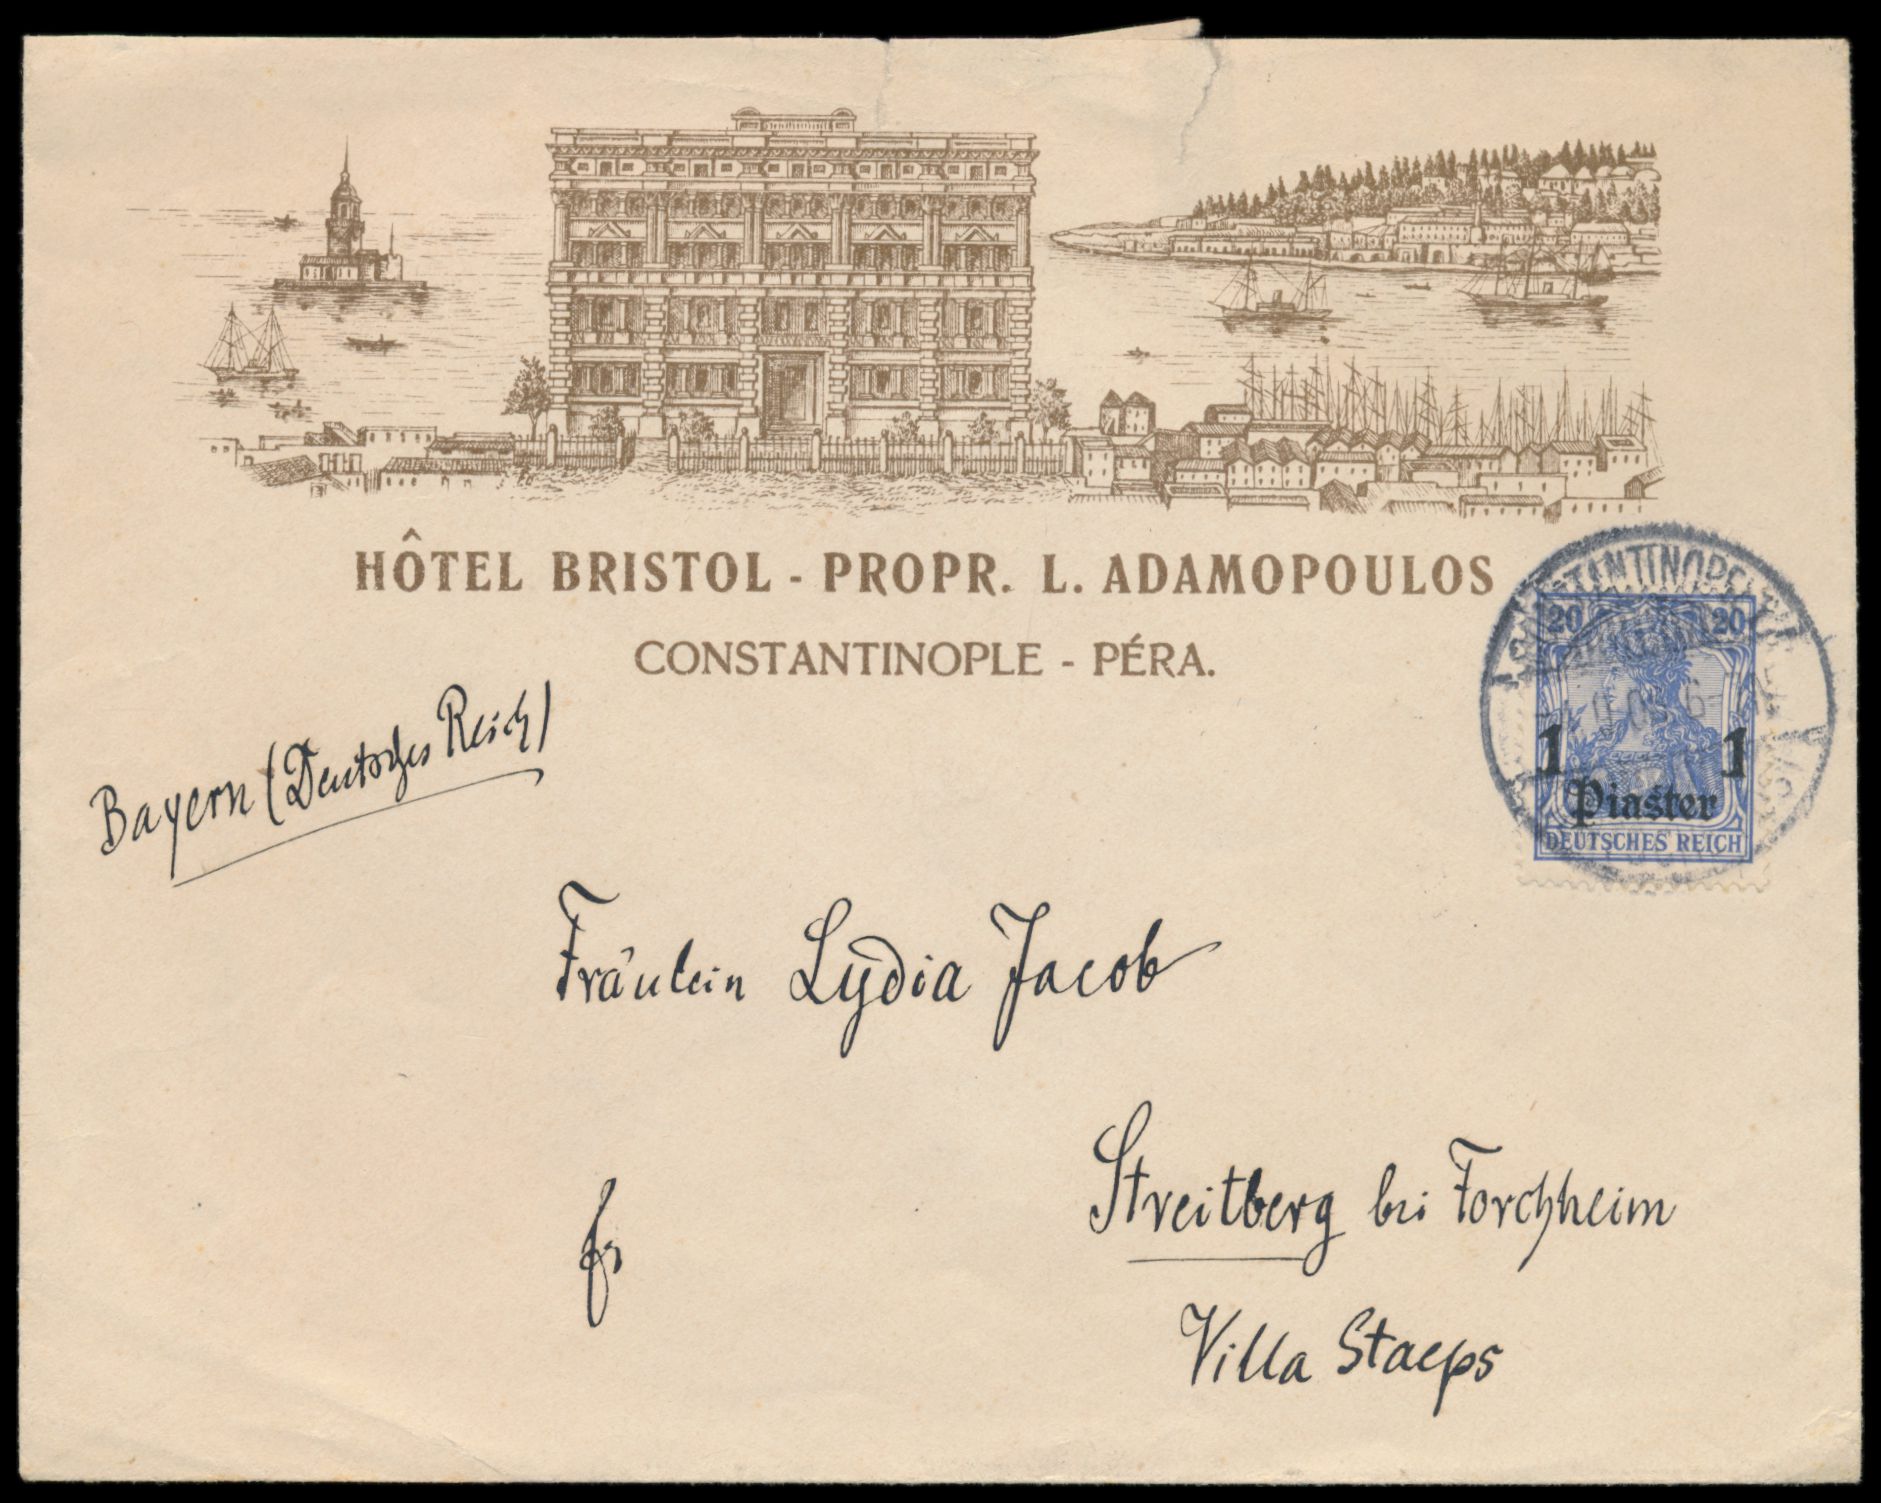 HÔTEL BRISTOL - PROPR. L. ADAMOPOULOS
CONSTANTINOPLE - PÉRA.
20 20
1 1
Piaster
DEUTSCHES REICH
Bayern (Deutsches Reich)
Fräulein Lydia Jacob
Streitberg bei Forchheim
Villa Staeps